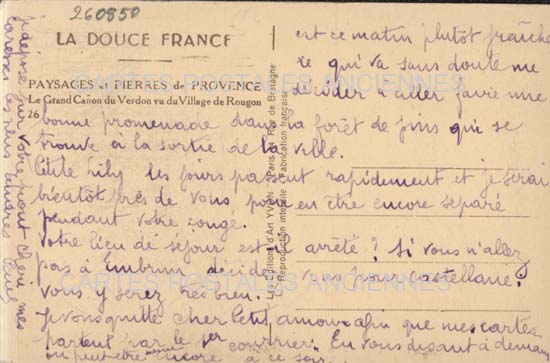 260850
LA DOUCE FRANCE
PAYSAGES et PIERRES de PROVENCE
Le Grand Cañon du Verdon vu du Village de Rougon
26
Les Editions d'Art YVON Paris Rue de Bretagne
Reproduction interdite Fabrication française
CARTES POSTALES ANCIENNES
est ce matin plutôt fraîche
ce qui va sans doute me
décider à aller faire une
bonne promenade dans la forêt de pins qui se
trouve à la sortie de la ville.
Petite Lily les jours passent rapidement et je serai
bientôt près de vous pour en être encore séparé
pendant votre congé.
Votre lieu de séjour est il arrêté ? Si vous n'allez
pas à Embrun décidez vous pour Castellane.
Vous y serez très bien.
Je vous quitte cher petit amour afin que mes cartes
partent par le 1er courrier. En vous disant à demain
ou peut être encore à ce soir.
je dépose sur votre front chéri mes
caresses les plus tendres
CARTES POSTALES ANCIENNES